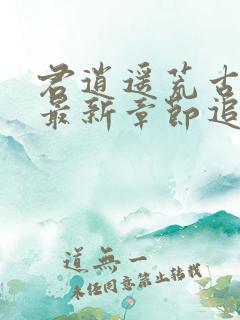 君逍遥荒古
最新章节追
道無一
未经同意禁止转载